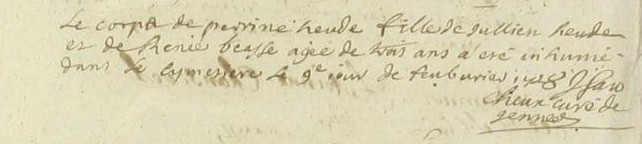 Le corps de perrine heude fille de Jullien heude
et de Renée beasse agée de trois ans a eté inhumé
dans le cymetiere le 9e jour de feuburier
curé de
gennes